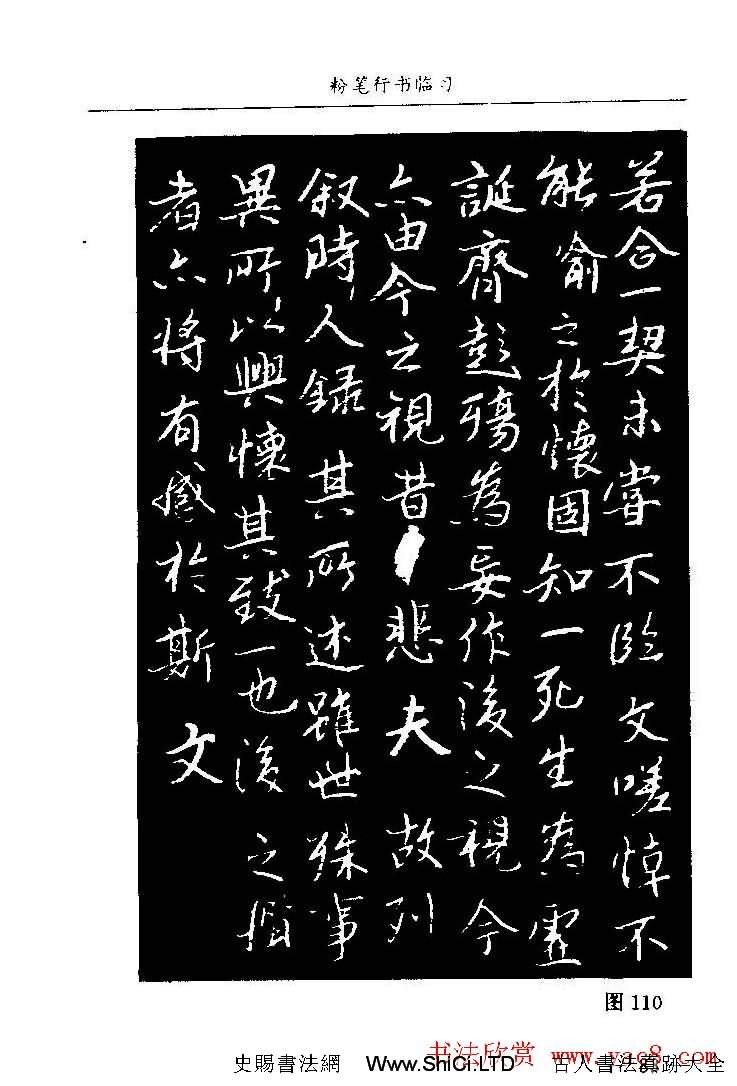 粉笔行书临习
若合一契未嘗不臨文嗟悼不
能喻之於懷固知一死生為虛
誕齊彭殤為妄作後之視今
亦由今之視昔悲夫故列
叙時人錄其所述雖世殊事
異所以興懷其致一也後之攬
者亦將有感於斯文
图 110
书法欣赏 www.yac8.com
史賜書法網 Www.ShiCi.LTD 古人書法真跡大全